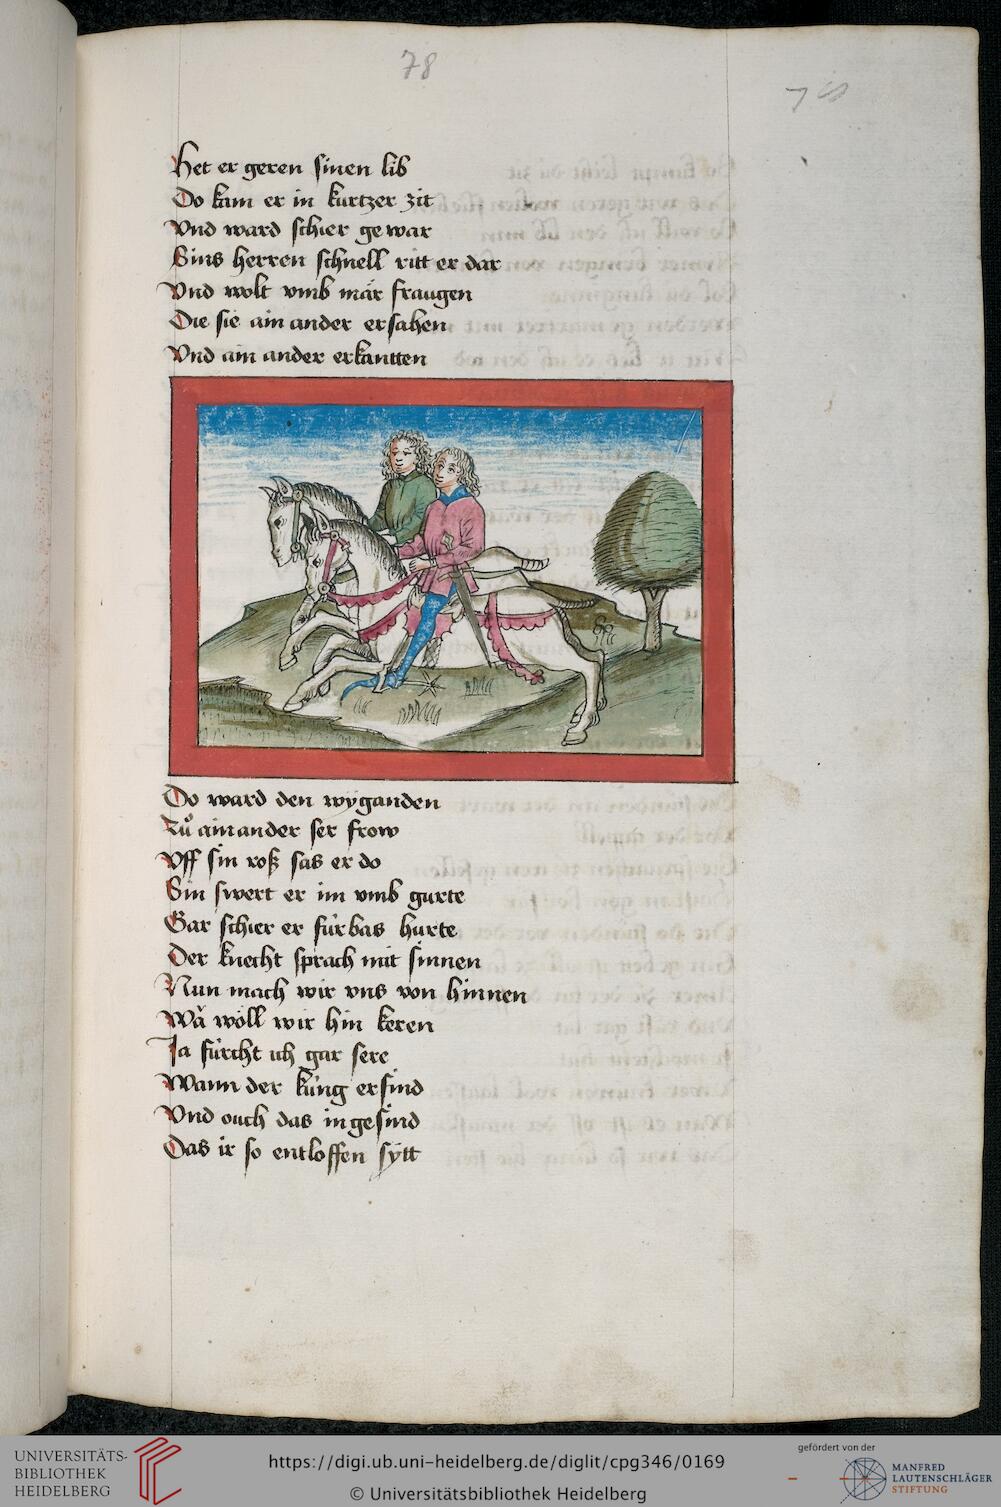 78
78
Het er geren sinen lib
Do kam er in kurtzer zit
Vnd ward schier gewar
Sins herren schnell ritt er dar
Vnd wolt vmb mär fraugen
Die sie ain ander ersahen
Vnd ain ander erkantten
Do ward den wyganden
Zuͦ ainander ser frow
Vff sin roß sas er do
Sin swert er im vmb gurte
Gar schier er fúrbas hurte
Der knecht sprach mit sinnen
Nun mach wir vns von hinnen
Wä wöll wir hin keren
Ja fúrcht ich gar sere
Wann der kúng ersind
Vnd ouch das ingesind
Das ir so entloffen sytt
UNIVERSITÄTS-
BIBLIOTHEK
HEIDELBERG
https://digi.ub.uni-heidelberg.de/diglit/cpg346/0169
© Universitätsbibliothek Heidelberg
gefördert von der
MANFRED
LAUTENSCHLÄGER
STIFTUNG